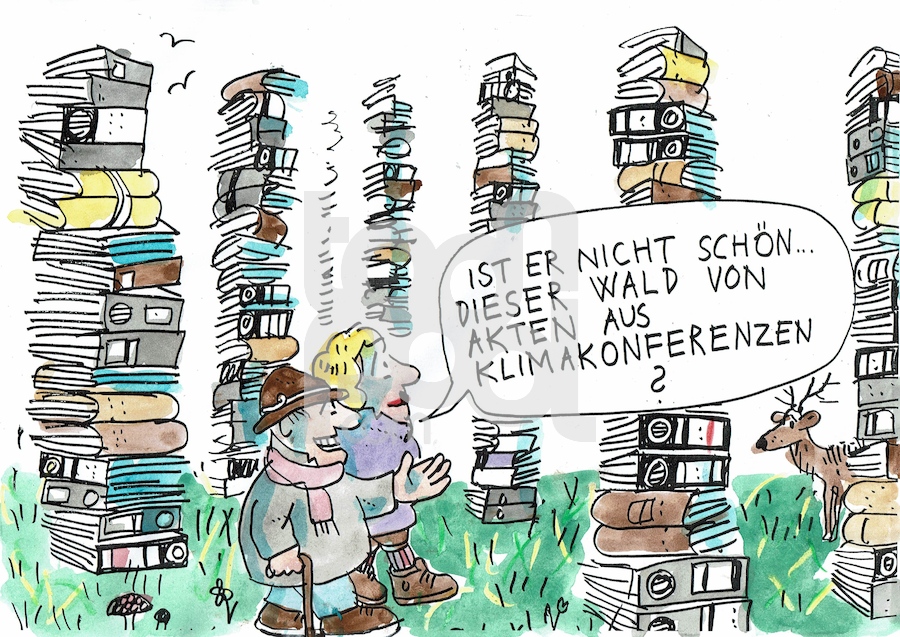 IST ER NICHT SCHÖN...
DIESER WALD VON
AKTEN AUS
KLIMAKONFERENZEN
?